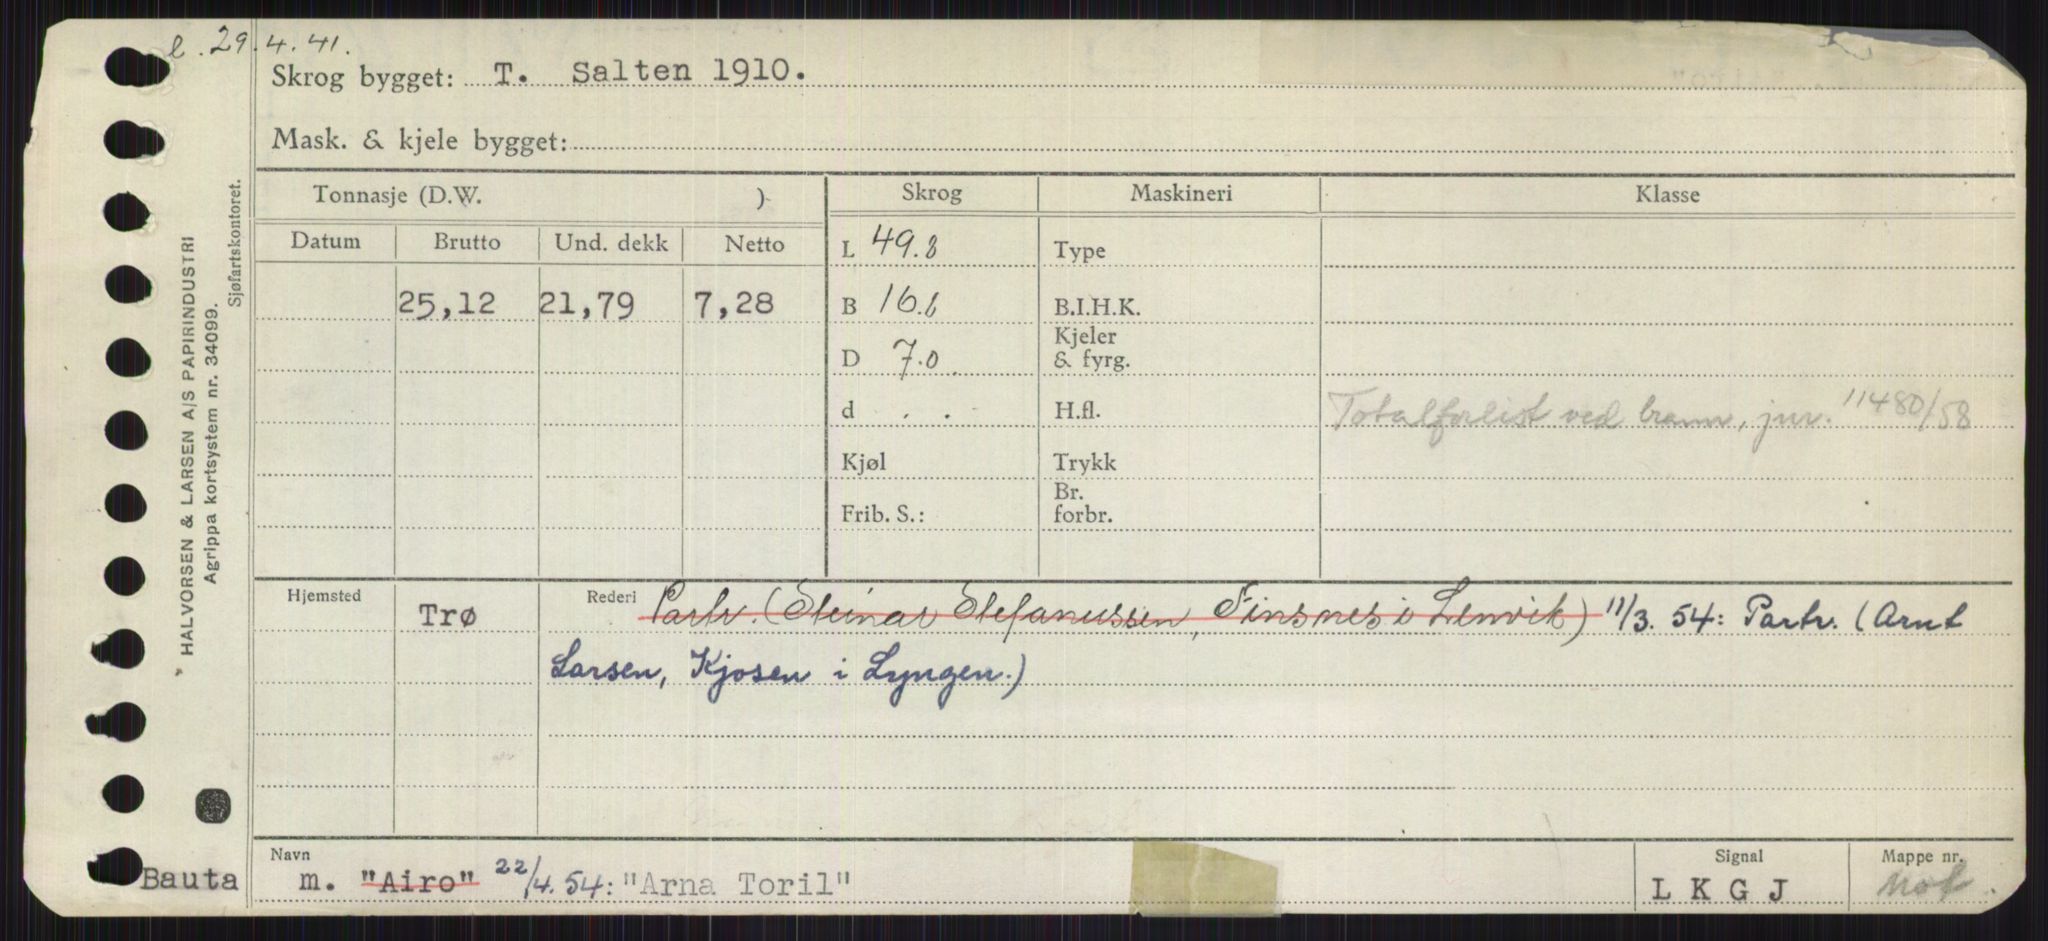 l. 29.4.41.
Skrog bygget: T. Salten 1910.
Mask. & kjele bygget:
Tonnasje (D.W. )
Skrog
Maskineri
Klasse
Datum
Brutto
Und. dekk
Netto
L 49.8
Type
25,12
21,79
7,28
B 16.6
B.I.H.K.
D 7.0
Kjeler
& fyrg.
d . .
H.fl.
Totalforlist ved brann, jnr. 11480/58
Kjøl
Trykk
Frib. S.:
Br.
forbr.
Hjemsted
Trø
Rederi Partr. (Steinar Stefanussen, Finsnes i Lenvik) 11/3. 54: Partr. (Arnt
Larsen, Kjosen i Lyngen.)
Navn
m. "Airo" 22/4.54: "Arna Toril"
Signal
L K G J
Mappe nr.
Mot.
Bauta
HALVORSEN & LARSEN A/S PAPIRINDUSTRI
Agrippa kortsystem nr. 34099.
Sjøfartskontoret.